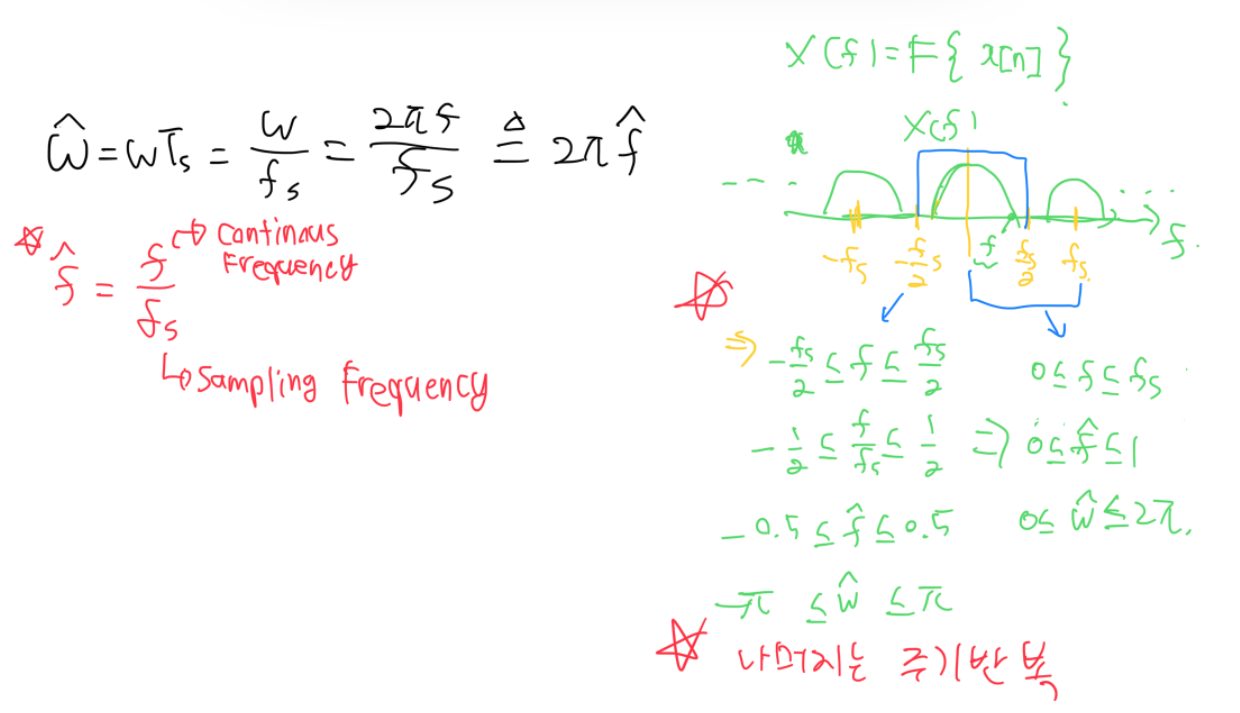 ŵ = wTs = w/fs = 2πf/fs ≜ 2πf̂
☆ f̂ = f/fs
↳ Continous Frequency
↳ Sampling Frequency
X(f) = F{ x[n] }
X(f)
- - - - · · · f
-fs -f/2s f fs/2 fs
⇒ -fs/2 ≤ f ≤ fs/2 0 ≤ f ≤ fs
-1/2 ≤ f/fs ≤ 1/2 ⇒ 0 ≤ f̂ ≤ 1
-0.5 ≤ f̂ ≤ 0.5 0 ≤ ŵ ≤ 2π.
-π ≤ ŵ ≤ π
☆ 나머지는 주기반복